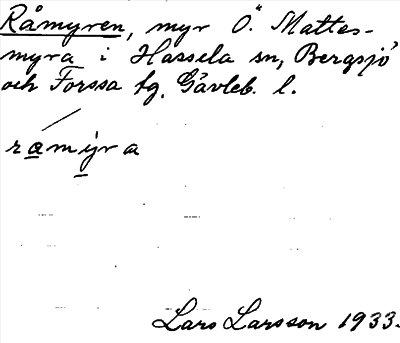 Råmyren, myr Ö. Mattes-
myra i Hassela sn, Bergsjö
och Forssa tg. Gävleb. l.
ramyra
Lars Larsson 1933.